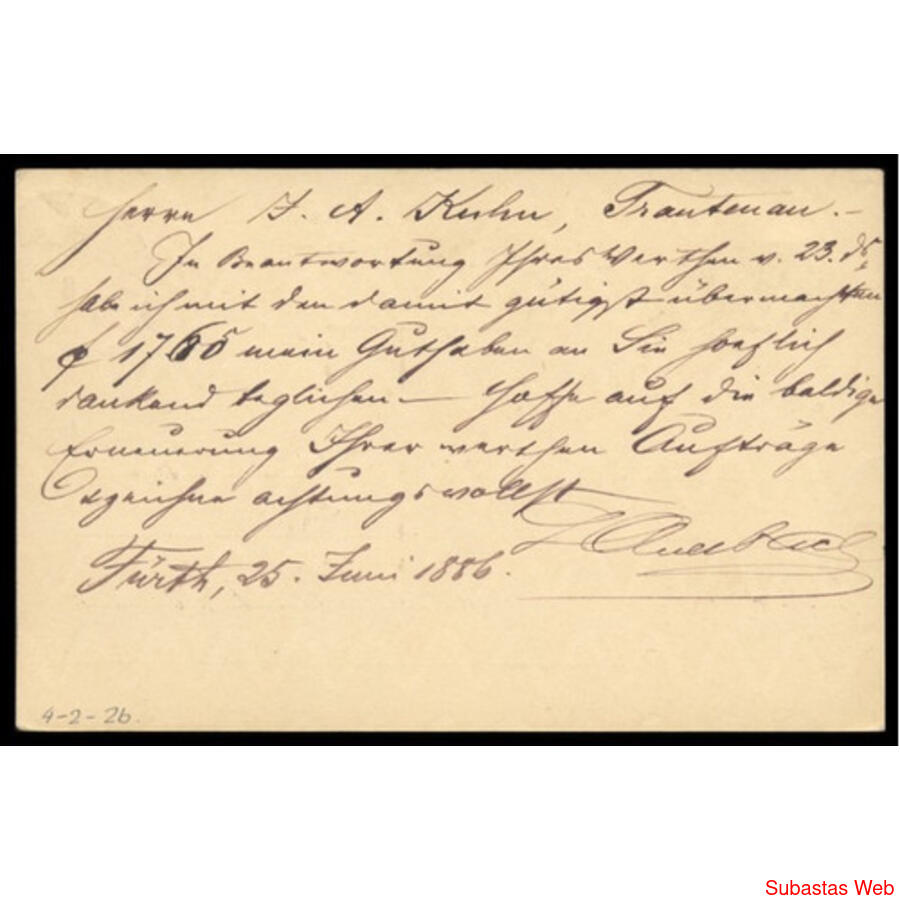 Herrn J. A. Kuhn, Trautenau. –
In Beantwortung Ihres Werthen v. 23. ds
habe ich mit den damit gütigst übermachten
f 1765 mein Guthaben an Sie höflich
dankend beglichen. — Hoffe auf die baldige
Erneuerung Ihrer werthen Aufträge
& zeichne achtungsvollst
Fürth, 25. Juni 1886.
4-2-26.
Subastas Web